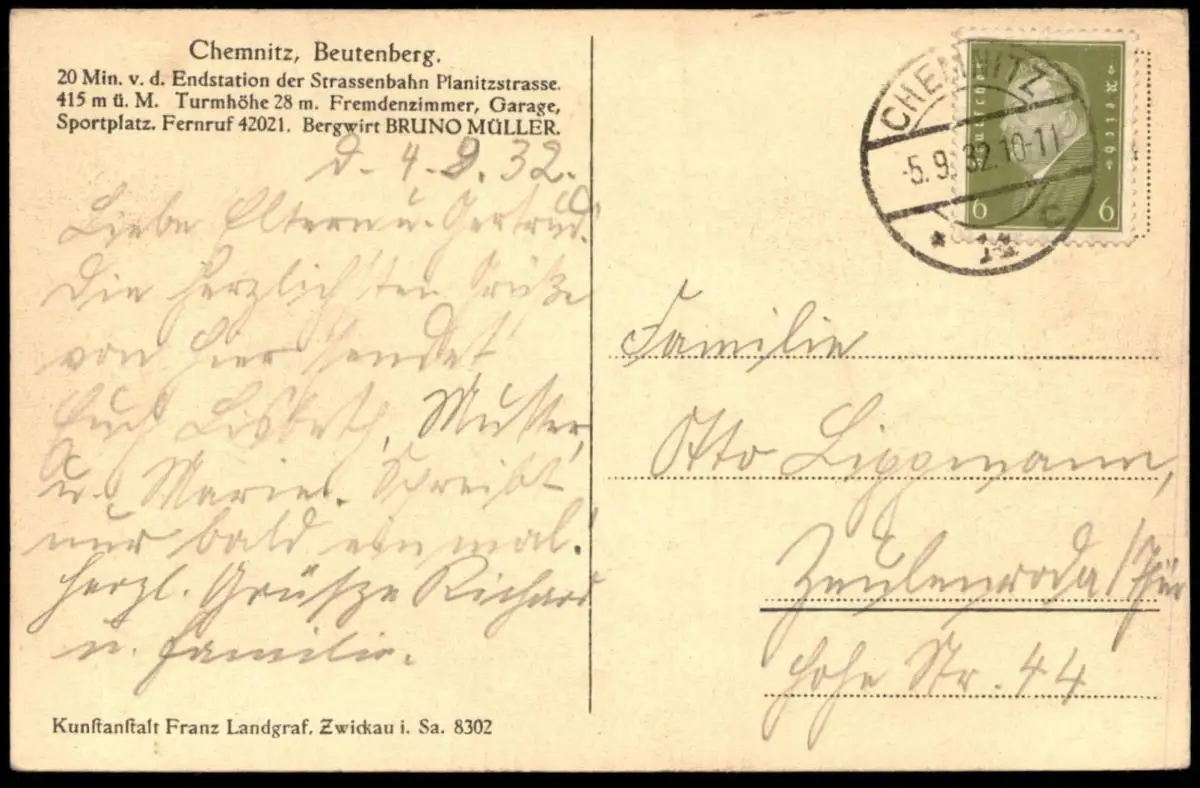 Chemnitz, Beutenberg.
20 Min. v. d. Endstation der Strassenbahn Planitzstrasse.
415 m ü. M. Turmhöhe 28 m. Fremdenzimmer, Garage,
Sportplatz. Fernruf 42021. Bergwirt BRUNO MÜLLER.
d. 4.9.32.
Liebe Eltern u. Gertrud!
Die herzlichsten Grüße
von hier sendet
Euch Lisbeth, Mutter,
u. Marie. Schreibt
nur bald ein mal!
Herzl. Grüße Richard
u. Familie.
Kunſtanſtalt Franz Landgraf, Zwickau i. Sa. 8302
CHEMNITZ
-5.9.32.10-11
C
Deutsches Reich
6 6
Familie
Otto Liggmann,
Zeulenroda/Thür
Hohe Str. 44